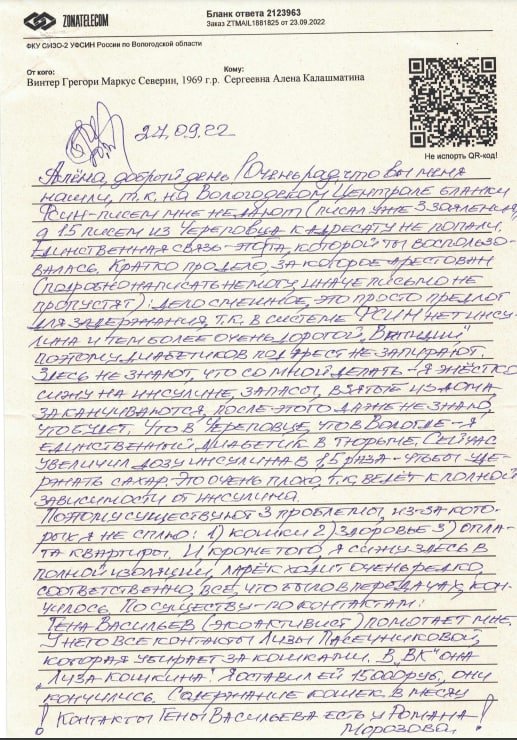 ZONATELECOM
Бланк ответа 2123963
Заказ ZTMAIL1881825 от 23.09.2022
ФКУ СИЗО-2 УФСИН России по Вологодской области
От кого:
Винтер Грегори Маркус Северин, 1969 г.р.
Кому:
Сергеевна Алена Калашматина
Не испорть QR-код!
24.09.22
Алёна, добрый день! Очень рад, что вы меня
нашли, т.к. на Вологодском Централе бланки
ФСИН-писем мне не дают (писал уже 3 заявления,
а 15 писем из Череповца к адресату не попали.
Единственная связь - эта, которой ты воспользо-
валась. Кратко про дело, за которое арестован
(подробно написать не могу, иначе письмо не
пропустят): дело смешное, это просто предлог
для задержания, т.к. в системе ФСИН нет инсу-
лина и тем более очень дорогой "
поэтому диабетиков под арест не запирают.
Здесь не знают, что со мной делать - я жёстко
сижу на инсулине, запасы, взятые из дома
заканчиваются, после этого даже не знаю,
что будет. Что в Череповце, что в Вологде - я
единственный диабетик в тюрьме. Сейчас
увеличил дозу инсулина в 1,5 раза - чтобы уде-
ржать сахар. Это очень плохо, т.к. ведёт к полной
зависимости от инсулина.
Поэтому существуют 3 проблемы, из-за кото-
рых я не сплю: 1) кошки 2) здоровье 3) опла-
та квартиры. И кроме того, я сижу здесь в
полной изоляции, ларёк ходит очень редко,
соответственно, всё, что было в передачах, кон-
чилось. По существу - по контактам:
Гена Васильев (экоактивист) помогает мне,
у него все контакты Лизы Пасечниковой,
которая убирает за кошками. В "ВК" она
"Лиза Кошкина". Оставил ей 15000 руб., они
кончились. Содержание кошек в месяц
! Контакты Гены Васильева есть у Романа !
Морозова.